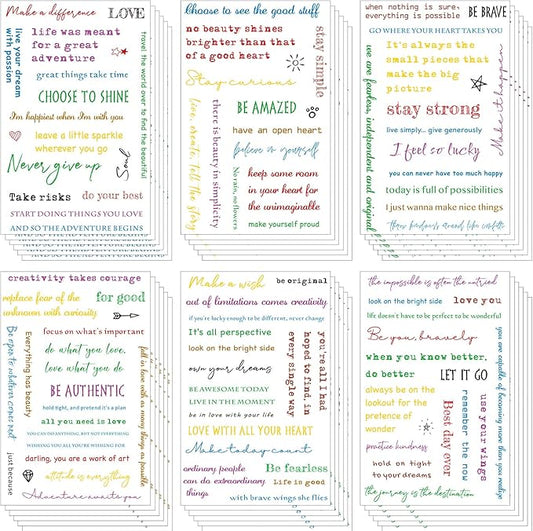 Make a difference
LOVE
live your dream
with passion
life was meant
for a great
adventure
travel the world over to find the beautiful
great things take time
CHOOSE TO SHINE
I'm happiest when I'm with you
leave a little sparkle
wherever you go
Soul
Never give up
Take risks
do your best
START DOING THINGS YOU LOVE
AND SO THE ADVENTURE BEGINS
AND SO THE ADVENTURE BEGINS
Choose to see the good stuff
no beauty shines
brighter than that
of a good heart
stay simple
Stay curious
live, create, tell the story
there is beauty in simplicity
BE AMAZED
have an open heart
believe in yourself
No rain, no flowers
keep some room
in your heart for
the unimaginable
make yourself proud
when nothing is sure,
everything is possible
BE BRAVE
GO WHERE YOUR HEART TAKES YOU
we are fearless, independent and original
It's always the
small pieces that
make the big
picture
Make it happen
stay strong
live simply... give generously
I feel so lucky
you can never have too much happy
today is full of possibilities
I just wanna make nice things
throw kindness around like confetti
creativity takes courage
replace fear of the
unknown with curiosity
for good
Everything has beauty
focus on what's important
do what you love,
love what you do
fall in love with as many things as possible
BE AUTHENTIC
hold tight, and pretend it's a plan
all you need is love
YOU CAN DO ANYTHING, BUT NOT EVERYTHING
WISHING YOU ALL YOU'RE WISHING FOR
just because
darling, you are a work of art
attitude is everything
Adventure awaits you
Make a wish
be original
out of limitations comes creativity
if you're lucky enough to be different, never change
It's all perspective
look on the bright side
own your dreams
you're all I had
hoped to find, in
every single way
BE AWESOME TODAY
LIVE IN THE MOMENT
be in love with your life
LOVE WITH ALL YOUR HEART
Make today count
ordinary people
can do extraordinary
things
Be fearless
Life is good
with brave wings she flies
the impossible is often the untried
look on the bright side
love you
life doesn't have to be perfect to be wonderful
Be you, bravely
when you know better,
do better
LET IT GO
you are capable of becoming more than you realize
always be on the
lookout for the
pretence of
wonder
Best day ever
remember the now
use your wings
practice kindness
hold on tight
to your dreams
the journey is the destination